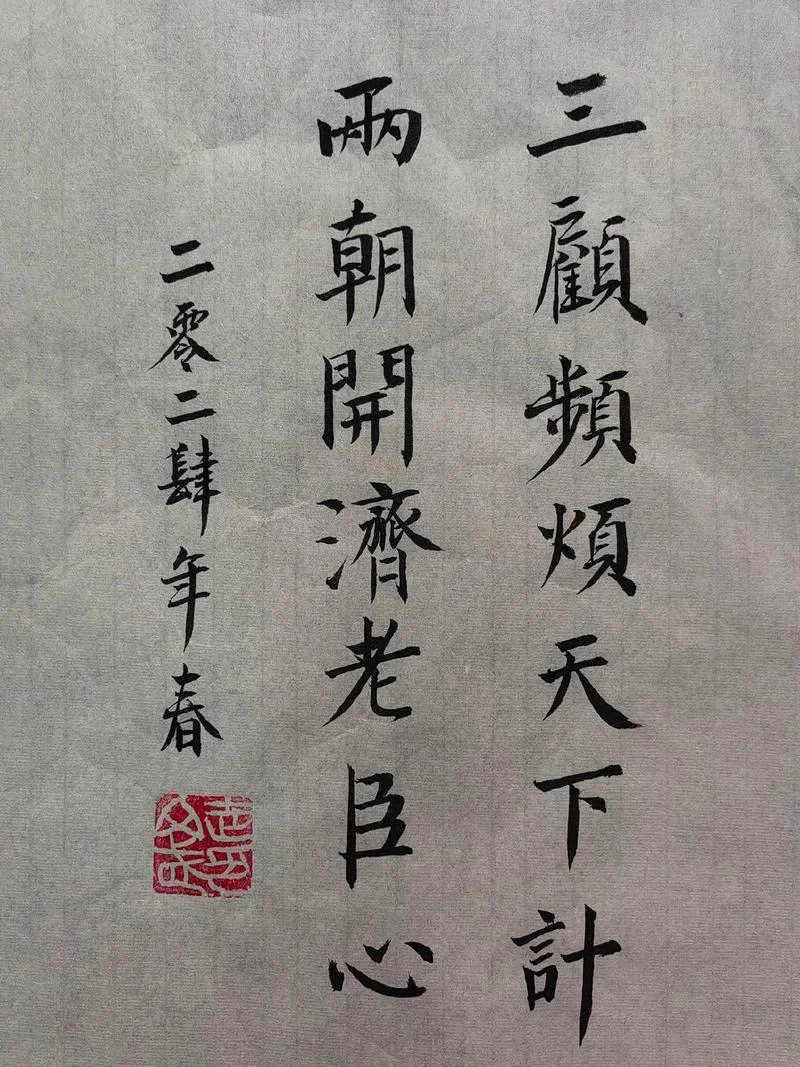 三顧頻煩天下計
兩朝開濟老臣心
二零二肆年春